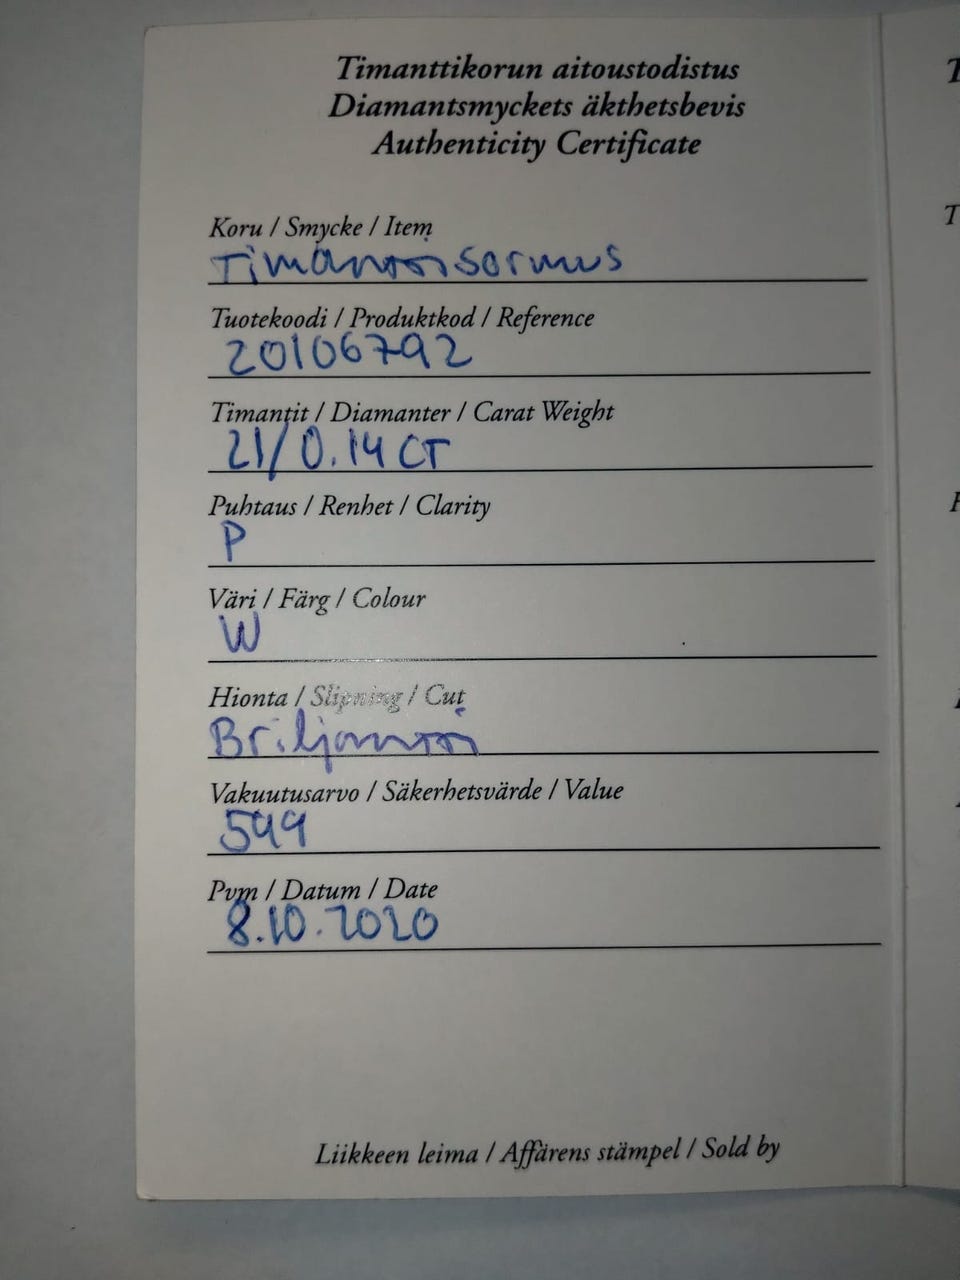 Timanttikorun aitoustodistus
Diamantsmyckets äkthetsbevis
Authenticity Certificate
Koru / Smycke / Item
Timanttisormus
Tuotekoodi / Produktkod / Reference
20106792
Timantit / Diamanter / Carat Weight
21/0.14 CT
Puhtaus / Renhet / Clarity
P
Väri / Färg / Colour
W
Hionta / Slipning / Cut
Briljantti
Vakuutusarvo / Säkerhetsvärde / Value
599
Pvm / Datum / Date
8.10.2020
Liikkeen leima / Affärens stämpel / Sold by